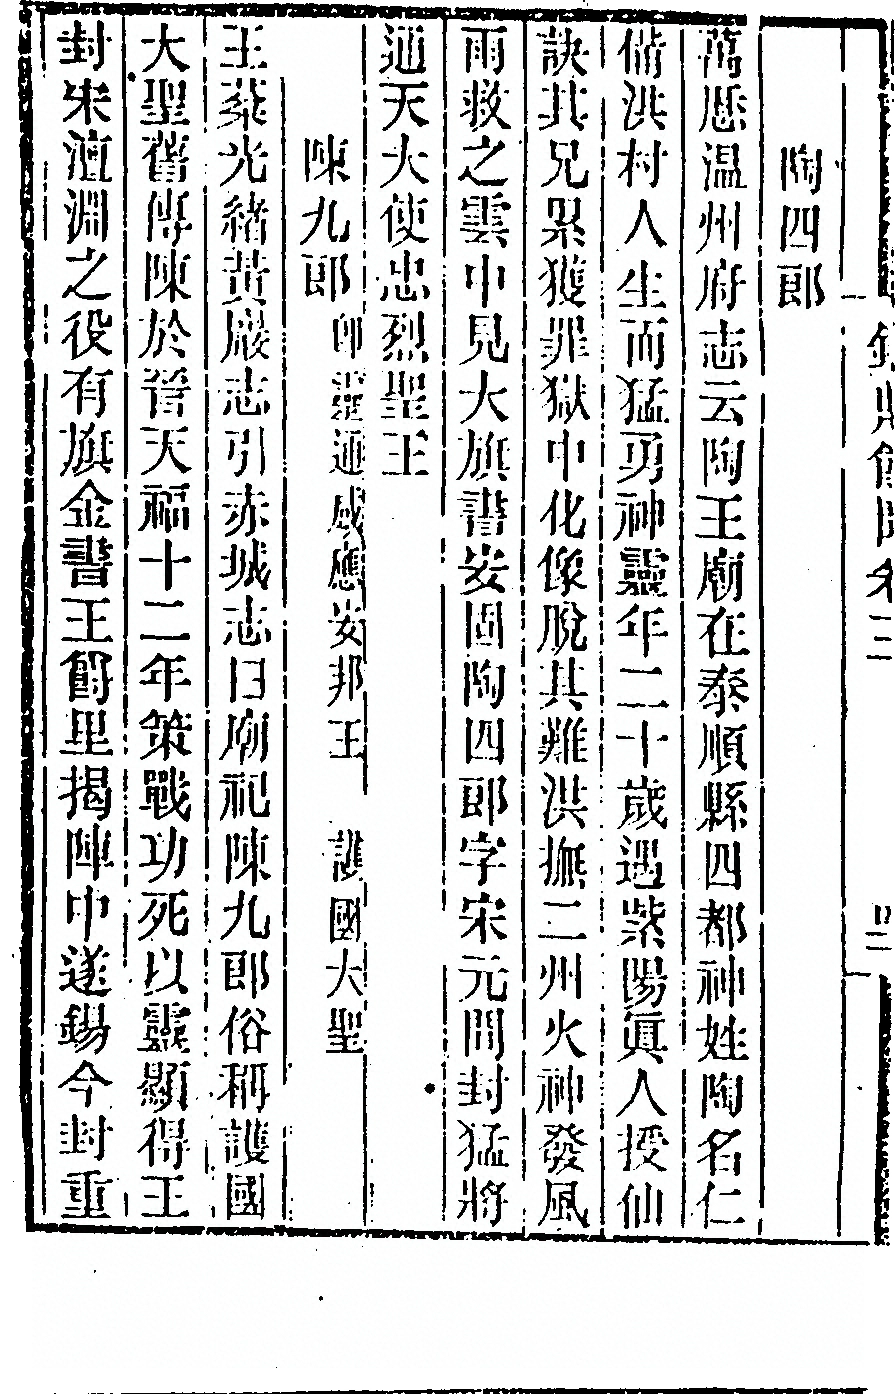 陶四郎
萬厯温州府志云陶王廟在泰順縣四都神姓陶名仁
偕洪村人生而猛勇神靈年二十歲遇紫陽眞人授仙
訣其兄累獲罪獄中化像脫其難洪撫二州火神發風
雨救之雲中見大旗書安固陶四郎字宋元間封猛將
通天大使忠烈聖王
陳九郎 卽靈通感應安邦王 護國大聖
王棻光緒黃巖志引赤城志曰廟祀陳九郎俗稱護國
大聖舊傳陳於晉天福十二年策戰功死以靈顯得王
封宋澶淵之役有旗金書王爵里揭陣中遂錫今封重